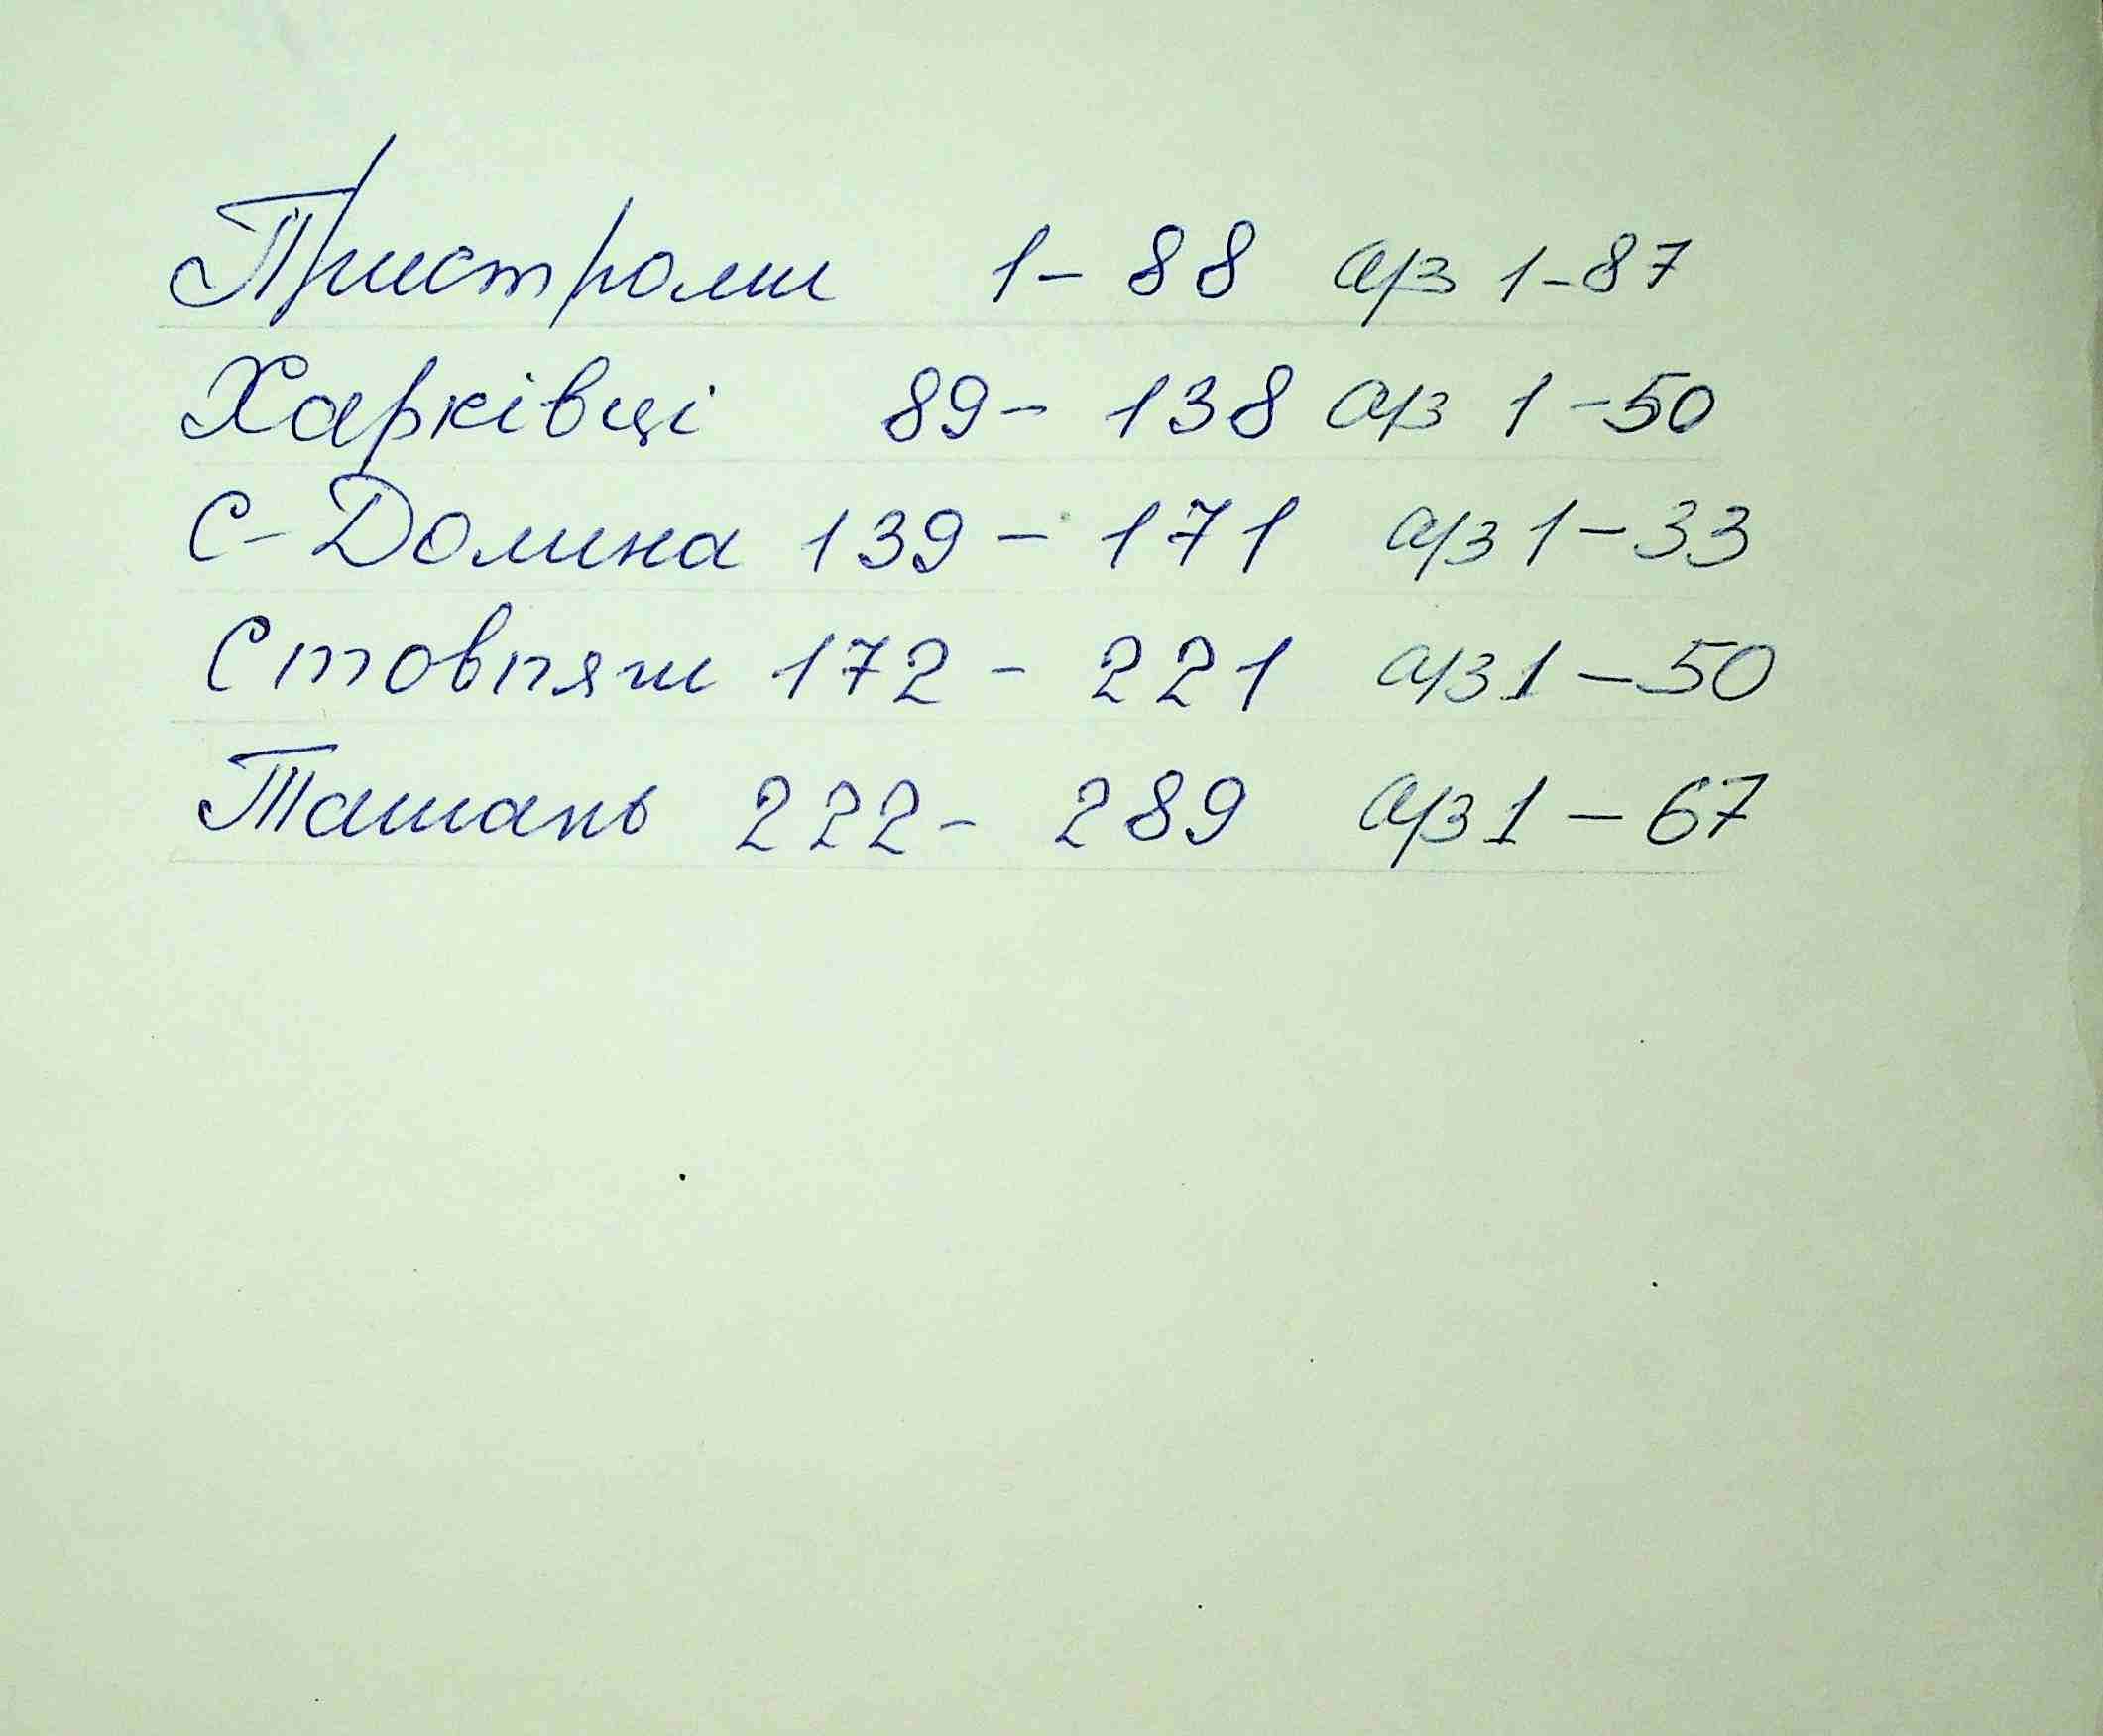 Пристроми 1-88 а/з 1-87
Харківці 89-138 а/з 1-50
С-Долина 139-171 а/з 1-33
Стовпяги 172-221 а/з 1-50
Ташань 222-289 а/з 1-67